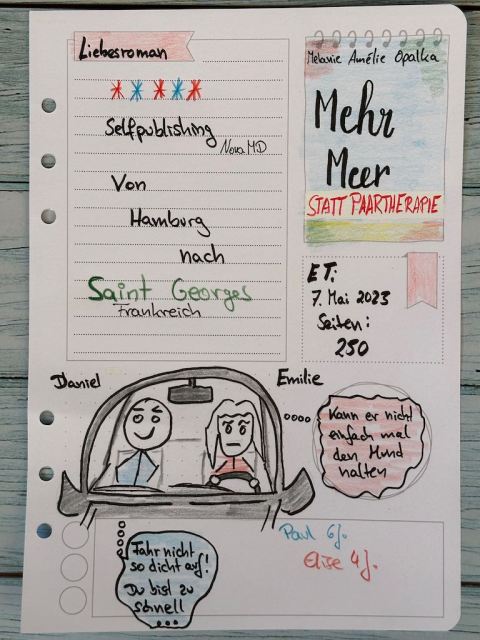 Liebesroman
Selfpublishing
Nova MD
Von
Hamburg
nach
Saint Georges
Frankreich
Melanie Amélie Opalka
Mehr
Meer
STATT PAARTHERAPIE
ET:
7. Mai 2023
Seiten:
250
Daniel
Emilie
Kann er nicht
einfach mal
den Mund
halten
Fahr nicht
so dicht auf!
Du bist zu
schnell
Paul 6J.
Elise 4J.